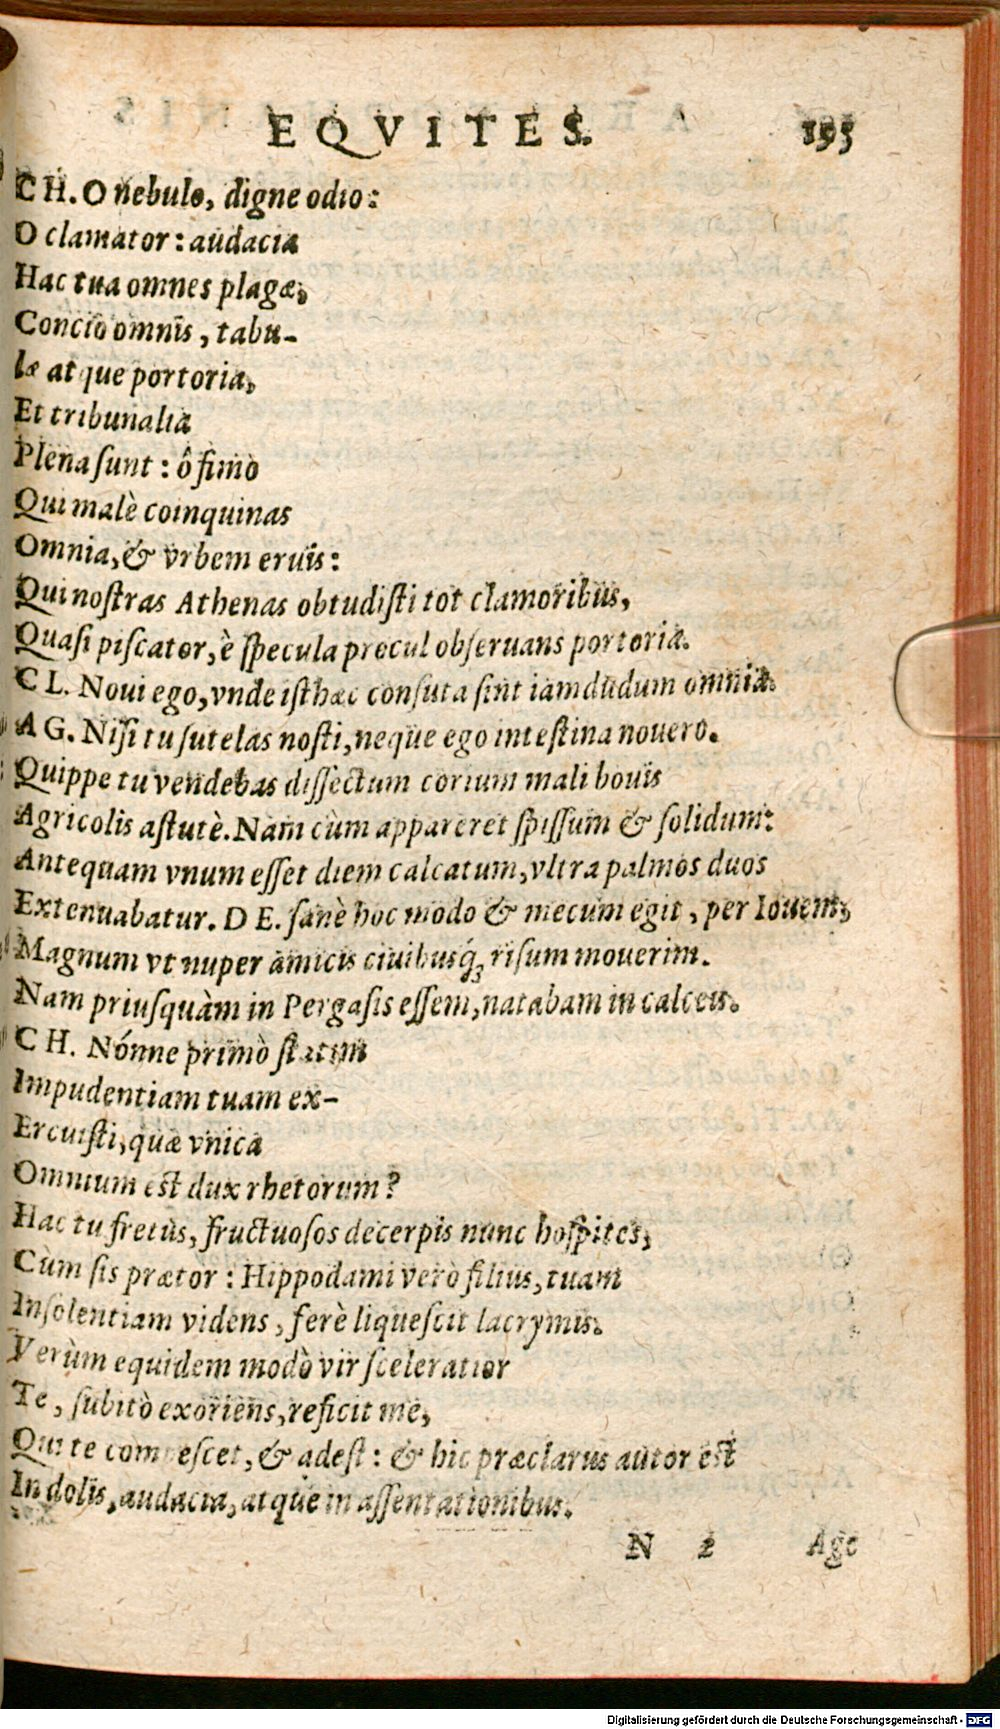 EQVITES. 195
CH. O nebulo, digne odio:
O clamator: audacia
Hac tua omnes plagæ,
Concio omnis, tabu-
læ atque portoria,
Et tribunalia
Plena sunt: ô fimo
Qui malè coinquinas
Omnia, & vrbem eruis:
Qui nostras Athenas obtudisti tot clamoribus,
Quasi piscator, è specula procul obseruans portoria.
CL. Noui ego, vnde isthæc consuta sint iamdudum omnia.
AG. Nisi tu sutelas nosti, neque ego intestina nouero.
Quippe tu vendebas dissectum corium mali bouis
Agricolis astutè. Nam cùm appareret spissum & solidum:
Antequam vnum esset diem calcatum, vltra palmos duos
Extenuabatur. DE. sanè hoc modo & mecum egit, per Iouem,
Magnum vt nuper amicis ciuibusq́; risum mouerim.
Nam priusquàm in Pergasis essem, natabam in calceis.
CH. Nónne primò statim
Impudentiam tuam ex-
Ercuisti, quæ vnica
Omnium est dux rhetorum?
Hac tu fretus, fructuosos decerpis nunc hospites,
Cùm sis prætor: Hippodami verò filius, tuam
Insolentiam videns, ferè liquescit lacrymis.
Verùm equidem modò vir sceleratior
Te, subitò exoriens, reficit me,
Qui te compescet, & adest: & hic præclarus autor est
In dolis, audacia, atque in assentationibus.
N 2 Age
Digitalisierung gefördert durch die Deutsche Forschungsgemeinschaft - DFG